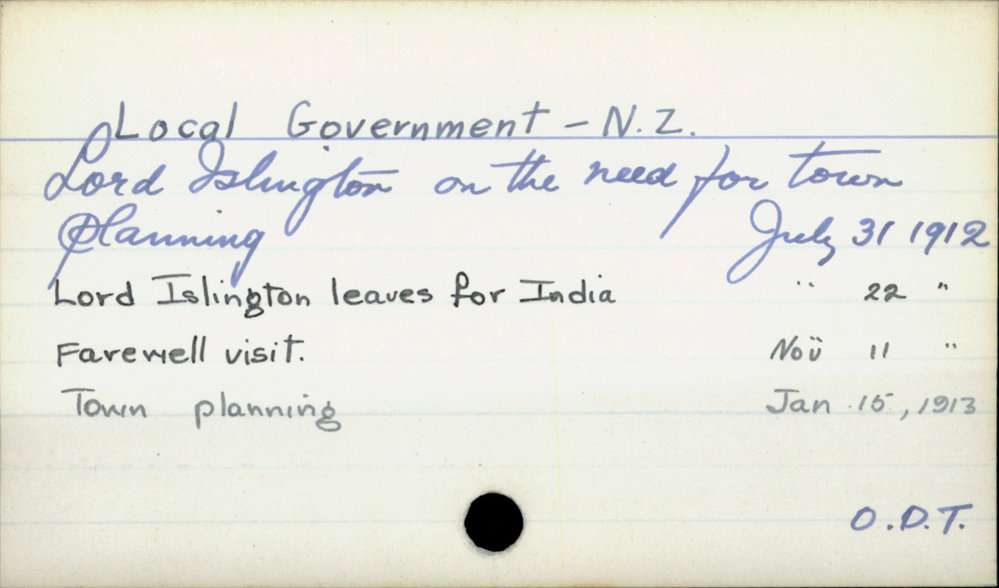 Local Government - N.Z.
Lord Islington on the need for town
planning July 31 1912
Lord Islington leaves for India " 22 "
Farewell visit. Nov 11 "
Town planning Jan 15, 1913
O.D.T.